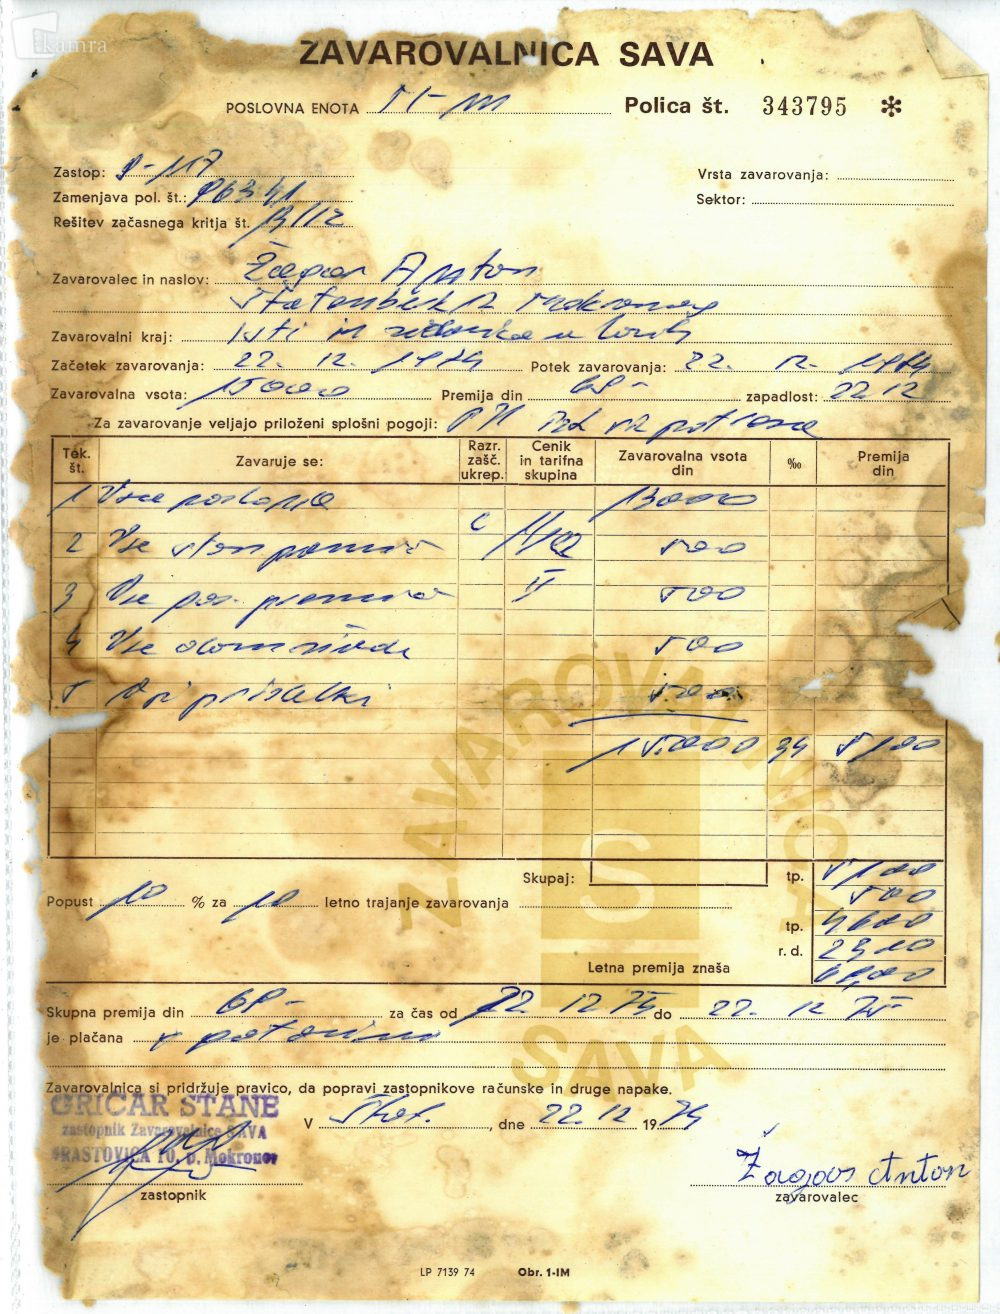 kamra
ZAVAROVALNICA SAVA
POSLOVNA ENOTA
Polica št. 343795 *
Zastop: 9-117
Vrsta zavarovanja:
Zamenjava pol. št.:
Sektor:
Rešitev začasnega kritja št.
Zavarovalec in naslov: Žagar Anton
Zavarovalni kraj: Isti in zidanica
Začetek zavarovanja: 22. 12. 1974 Potek zavarovanja: 22. 12.
Zavarovalna vsota: 15000 Premija din 69- zapadlost: 22 12
Za zavarovanje veljajo priloženi splošni pogoji:
Tek. št. Zavaruje se: Razr. zašč. ukrep. Cenik in tarifna skupina Zavarovalna vsota din ‰ Premija din
1 Vsa poslopja 13000
2 Vse 500
3 Vse 500
4 Vse 500
5 Vsi pridelki 500
15.000 34 5100
Skupaj: tp. 5100
Popust 10 % za 10 letno trajanje zavarovanja 500
tp. 4600
r. d. 2300
Letna premija znaša
Skupna premija din 69- za čas od 22. 12 74 do 22. 12 75
je plačana v gotovini
Zavarovalnica si pridržuje pravico, da popravi zastopnikove računske in druge napake.
GRIČAR STANE
zastopnik Zavarovalnice SAVA
HRASTOVICA 10, p. Mokronog
V Štef. , dne 22. 12 1974
Žagar Anton
zastopnik
zavarovalec
ZAVAROVALNICA
S
SAVA
LP 7139 74 Obr. 1-IM